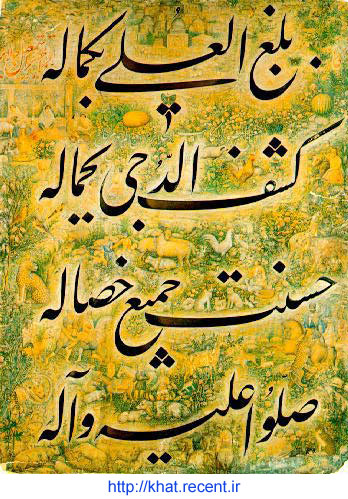 بلغ العلى بكماله
كشف الدّجى بجماله
حسنت جميع خصاله
صلّوا عليه وآله
http://khat.recent.ir